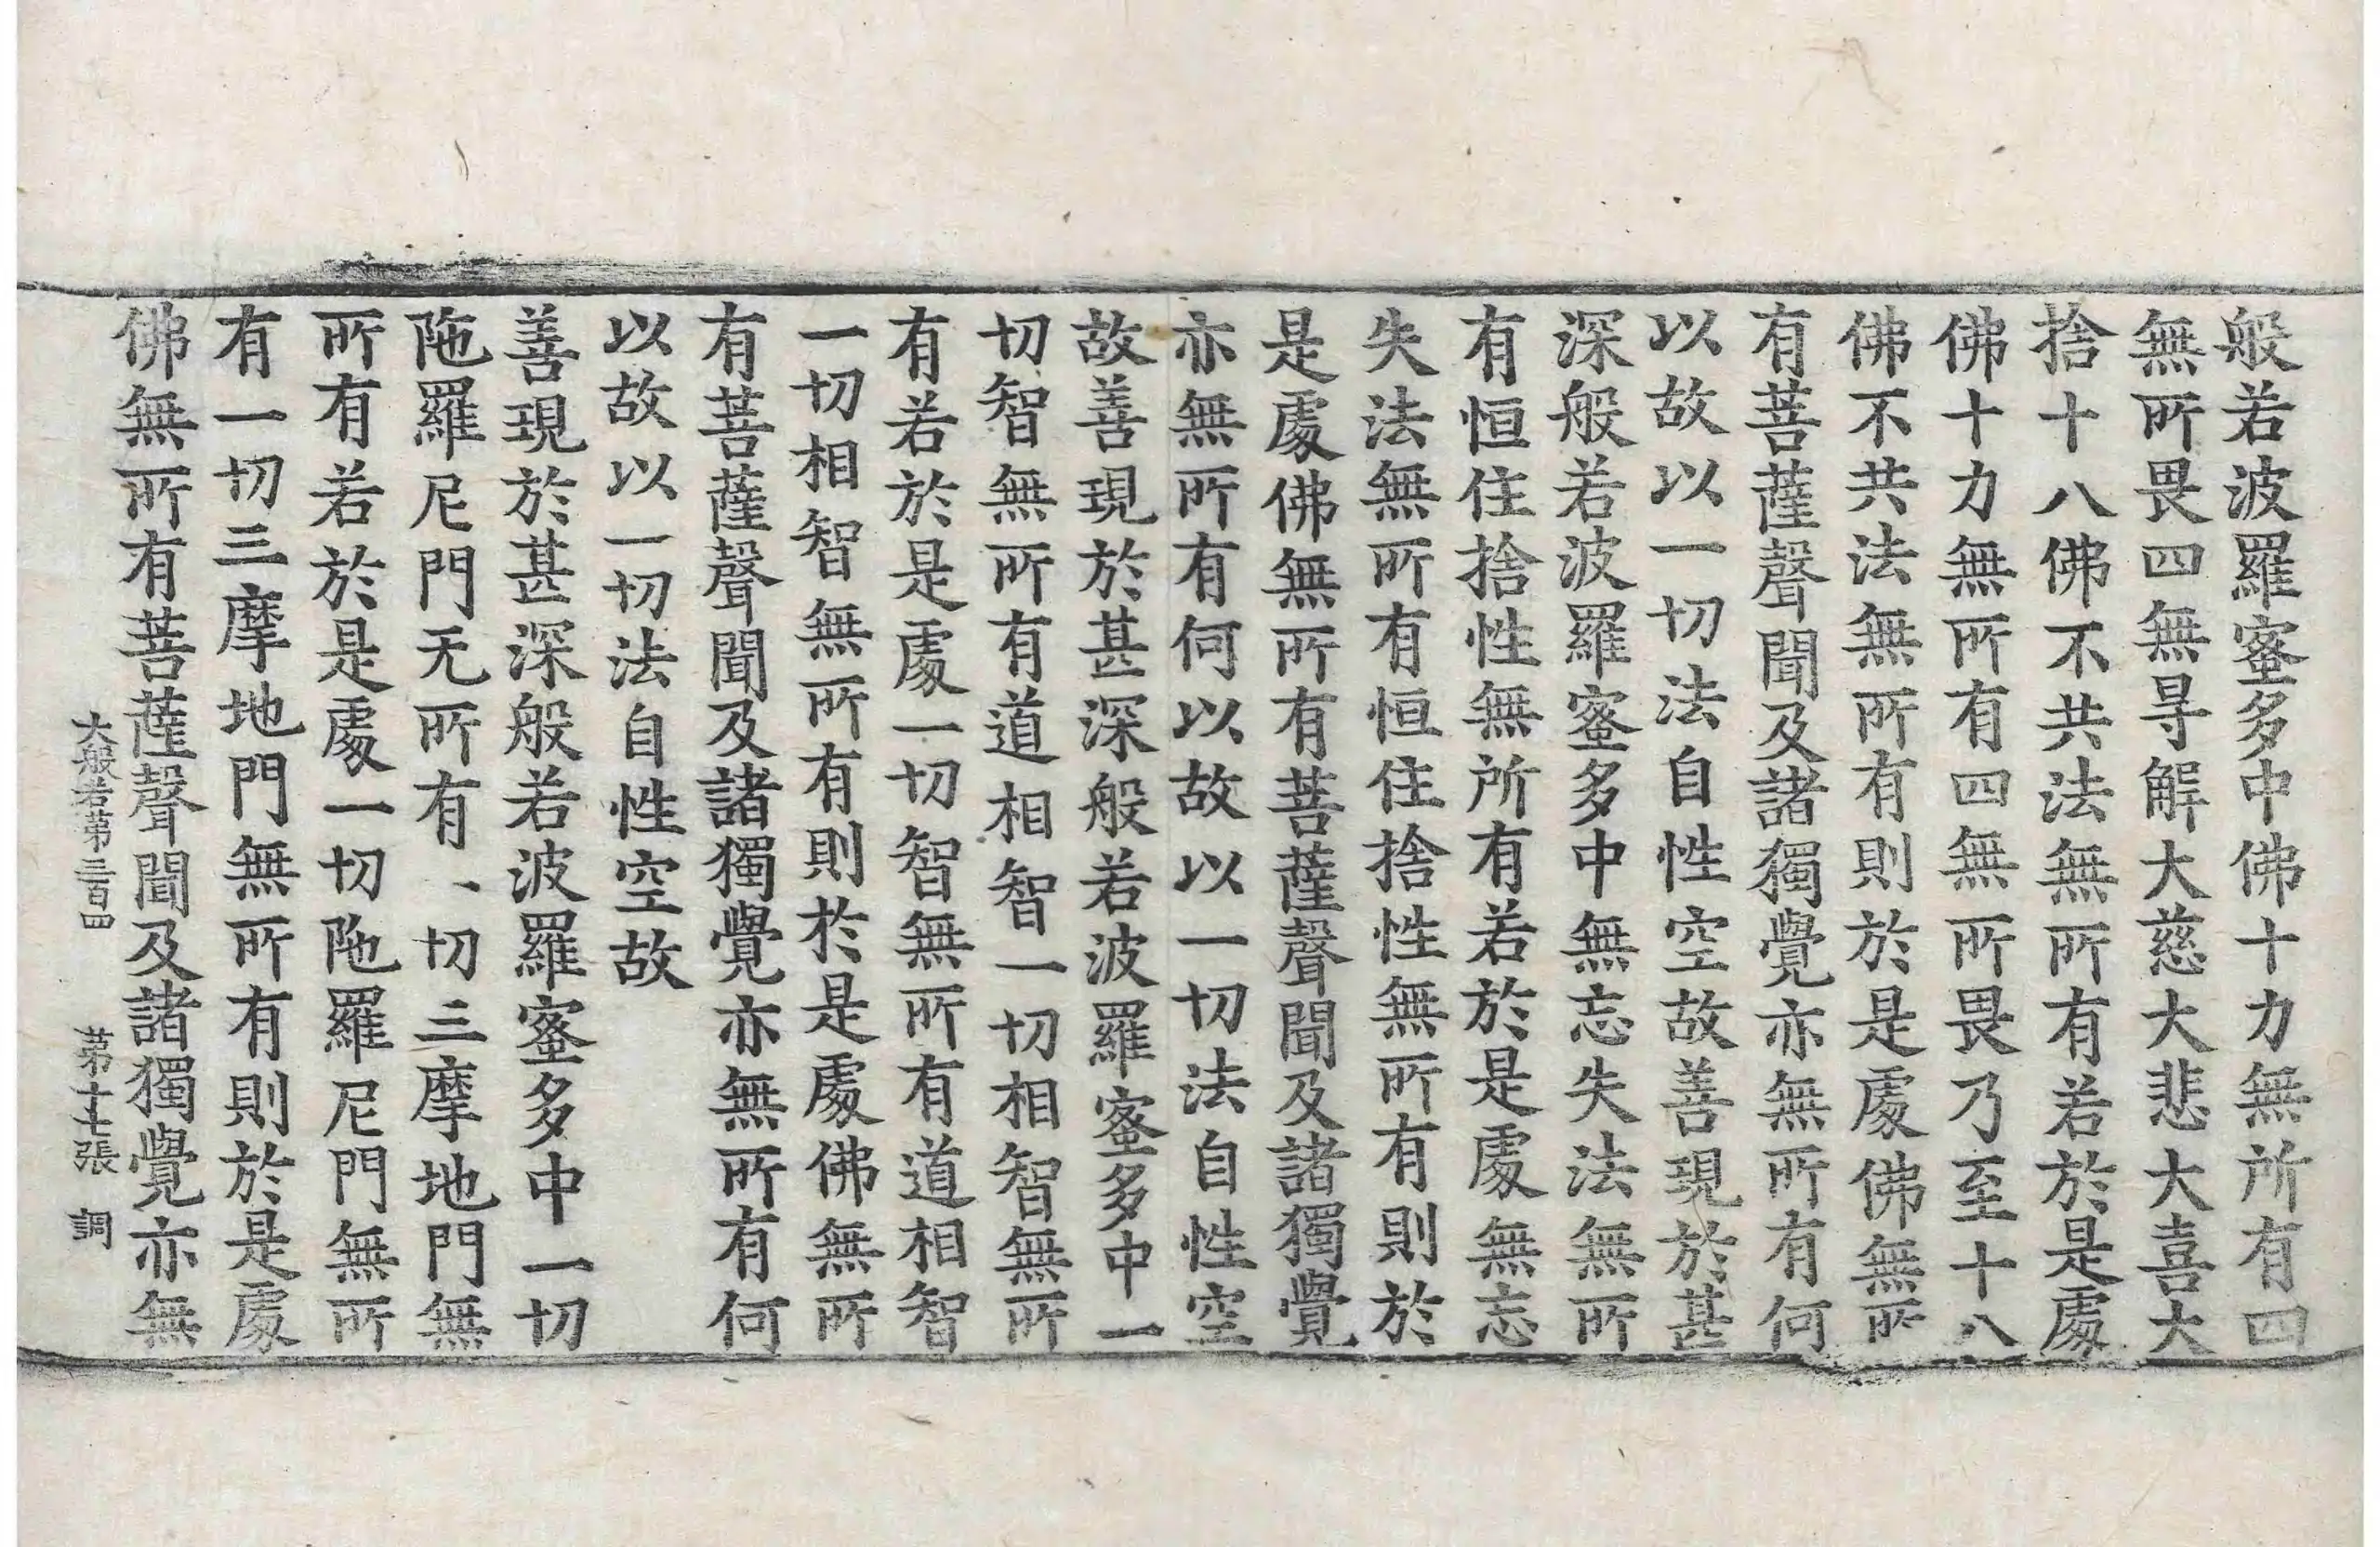 般若波羅蜜多中佛十力無所有四
無所畏四無㝵解大慈大悲大喜大
捨十八佛不共法無所有若於是處
佛十力無所有四無所畏乃至十八
佛不共法無所有則於是處佛無所
有菩薩聲聞及諸獨覺亦無所有何
以故以一切法自性空故善現於甚
深般若波羅蜜多中無忘失法無所
有恒住捨性無所有若於是處無忘
失法無所有恒住捨性無所有則於
是處佛無所有菩薩聲聞及諸獨覺
亦無所有何以故以一切法自性空
故善現於甚深般若波羅蜜多中一
切智無所有道相智一切相智無所
有若於是處一切智無所有道相智
一切相智無所有則於是處佛無所
有菩薩聲聞及諸獨覺亦無所有何
以故以一切法自性空故
善現於甚深般若波羅蜜多中一切
陁羅尼門无所有一切三摩地門無
所有若於是處一切陁羅尼門無所
有一切三摩地門無所有則於是處
佛無所有菩薩聲聞及諸獨覺亦無
大般若第三百四 第十七張 調